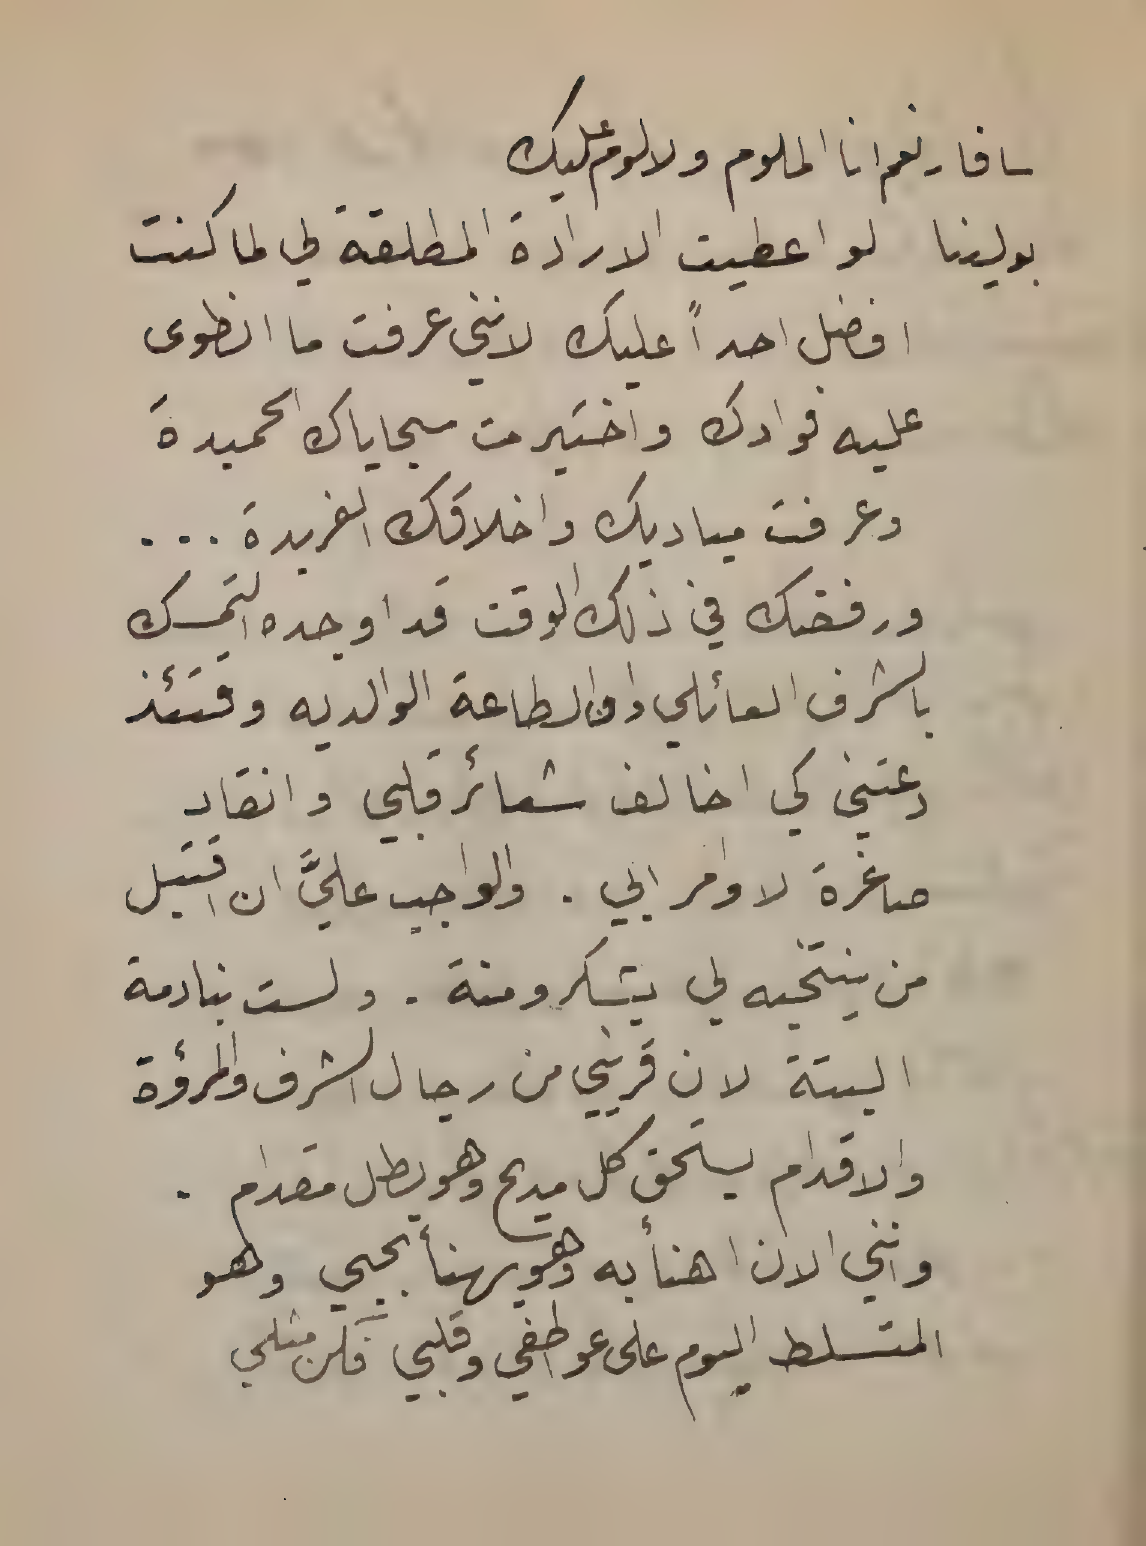 سافار نعم انا الملوم ولا لوم عليك
بولينا لو اعطيت الارادة المطلقة لي لما كنت
افضل احداً عليك لانني عرفت ما انطوى
عليه فوادك واختبرت سجاياك الحميدة
وعرفت مباديك واخلاقك الفريدة ...
ورفضك في ذلك الوقت قد اوجده التمسك
بالشرف العائلي والطاعة الوالديه وقتئذ
دعتني كي اخالف شعائر قلبي وانقاد
صاغرة لاوامر ابي . والواجب عليَّ ان اقتبل
من ينتخبه لي بشكر ومنة . ولست بنادمة
البتة لان قريني من رجال الشرف والمرؤة
والاقدام يستحق كل مديح وهو بطل مقدام .
وانني الان اهنأ به وهو يهنأ بحبي وهو
المتسلط اليوم على عواطفي وقلبي فكن مثلي